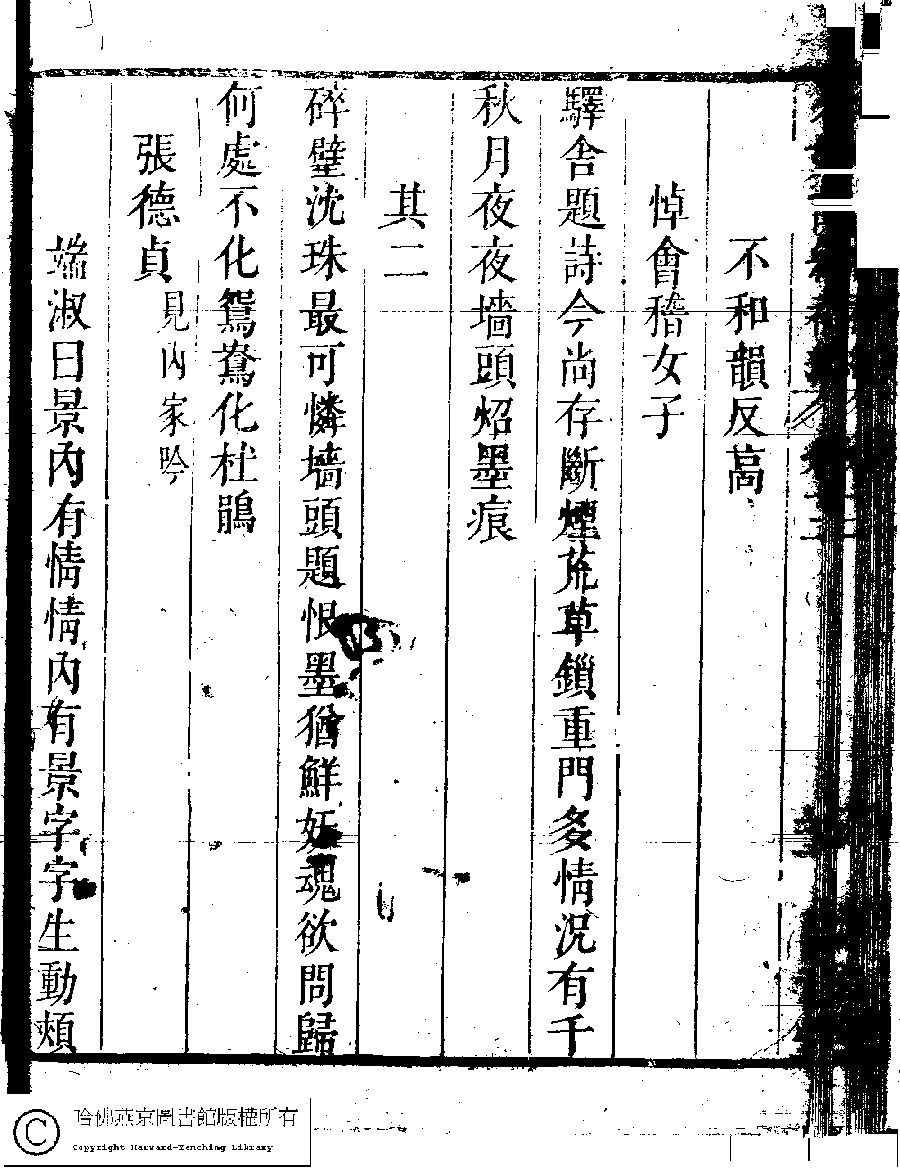 不和韻反高
悼會稽女子
驛舍題詩今尚存斷煙荒草鎖重門多情况有千
秋月夜夜墻頭炤墨痕
其二
碎璧沈珠最可憐墻頭題恨墨猶鮮妬魂欲問歸
何處不化鴛鴦化杜鵑
張德貞 見內家吟
端淑曰景內有情情內有景字字生動頰
哈佛燕京圖書館版權所有
Copyright Harvard-Yenching Library